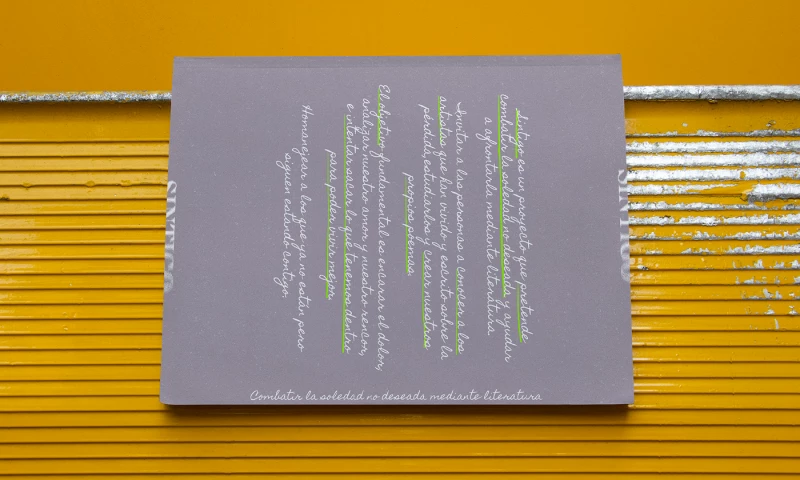 sintigo es un proyecto que pretende
combatir la soledad no deseada y ayudar
a afrontarla mediante literatura.
Invitar a las personas a conocer a los
artistas que han vivido y escrito sobre la
pérdida, estudiarlos y crear nuestros
propios poemas.
El objetivo fundamental es encarar el dolor,
analizar nuestro amor y nuestro rencor,
e intentar sacar lo que tenemos dentro
para poder vivir mejor.
Homanejear a los que ya no están pero
siguen estando contigo.
Combatir la soledad no deseada mediante literatura